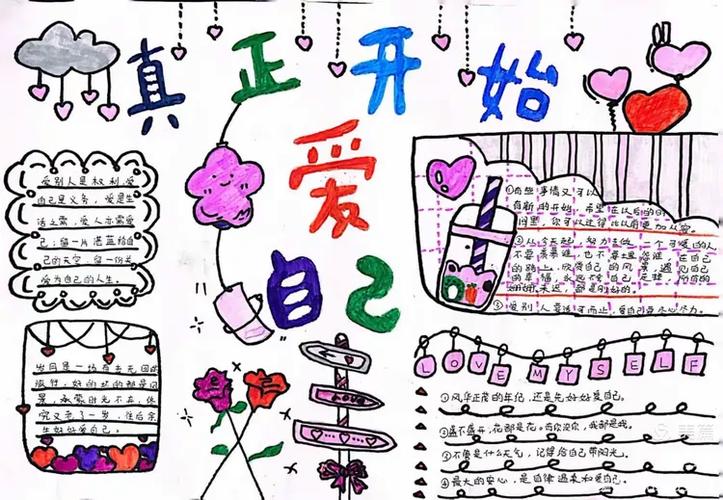 真正开始
爱
自己
爱别人是权利,爱
自己是义务,爱是生
活之需,爱人亦需爱
己;留一片湛蓝给自
己的天空,留一份关
爱为自己的人生。
岁月是一场有去无回的
旅行,好的坏的都是风
景,承蒙时光不弃,终
究又老了一岁,往后余
生好好爱自己。
①有些事情又可以
有新的开始,希望在以后的时
间里,你可以过得比以前更加从容。
②从今天起,努力去做一个可爱的人
不要羡慕谁,也不要埋怨谁,在自己
的路上,欣赏自己的风景,遇见自己
的幸福,永远不
如何时来迟,都是刚好的。
③爱别人要适可而止,爱自己要尽心尽力。
LOVE MYSELF
LOVE
①风华正茂的年纪,还是先好好爱自己。
②盛不盛开,花都是花。有你没你,我都是我。
③不管是什么天气,记得给自己带阳光。
④最大的安心,是自律温柔和爱自己。